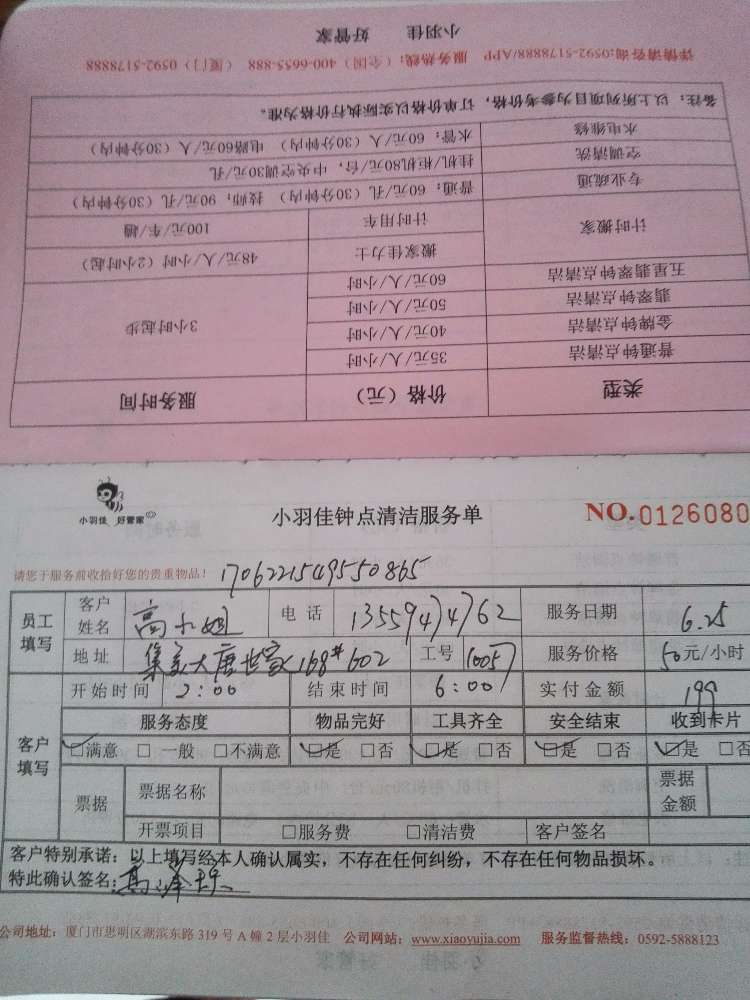 小羽佳 好管家
详情请咨询:0592-5178888/APP 服务热线:(全国)400-6655-888 (厦门)0592-5178888
备注:以上所列项目为参考价格,订单价格以实际执行价格为准。
水电维修 水管:60元/人(30分钟内) 电路60元/人(30分钟内)
空调清洗 挂机/柜机80元/台,中央空调30元/孔
专业疏通 普通:60元/孔(30分钟内) 技师:90元/孔(30分钟内)
计时搬家 计时用车 100元/车/趟
搬家佳力士 48元/人/小时(2小时起)
五星翡翠钟点清洁 60元/人/小时 3小时起步
翡翠钟点清洁 50元/人/小时
金牌钟点清洁 40元/人/小时
普通钟点清洁 35元/人/小时
类型 价格(元) 服务时间
小羽佳 好管家
小羽佳钟点清洁服务单
NO.0126080
请您于服务前收拾好您的贵重物品! 1706221549550865
员工填写 客户姓名 高小姐 电话 13559474762 服务日期 6.25
地址 集美大唐世家168#602 工号 1005 服务价格 50元/小时
客户填写 开始时间 2:00 结束时间 6:00 实付金额 199
服务态度 物品完好 工具齐全 安全结束 收到卡片
☑满意 □一般 □不满意 ☑是 □否 ☑是 □否 ☑是 □否 ☑是 □否
票据 票据名称 票据金额
开票项目 □服务费 □清洁费 客户签名
客户特别承诺:以上填写经本人确认属实,不存在任何纠纷,不存在任何物品损坏。
特此确认签名:高
公司地址:厦门市思明区湖滨东路319号A幢2层小羽佳 公司网站:www.xiaoyujia.com 服务监督热线:0592-5888123